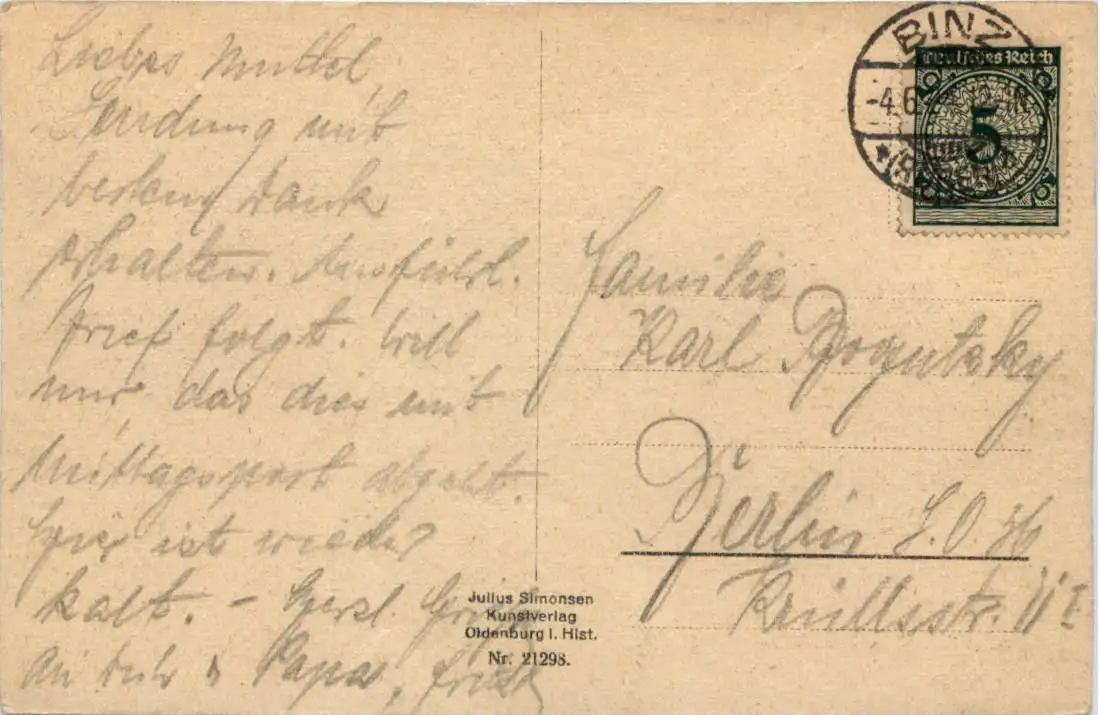 Liebes Muttel,
Sendung mit
bestem Dank
erhalten. Ausführl.
Brief folgt. Will
nur, das dies mit
Mittagspost abgeht.
Hier ist wieder
kalt. – Herzl. Grüße
an Dich u Papa,
BINZ
-4.6
Deutsches Reich
5
Familie
Karl Bogutzky
Berlin S.O. 36
Krüllsstr. II I
Julius Simonsen
Kunstverlag
Oldenburg i. Hlst.
Nr. 21298.